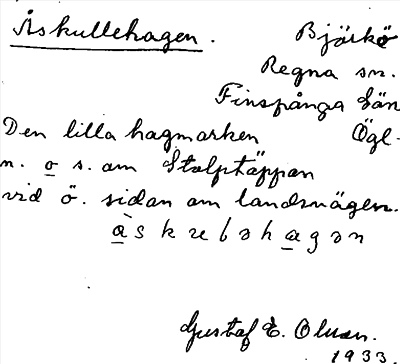 Åskullehagen. Björkö
Regna sn.
Finspånga län
Den lilla hagmarken Ögl.
n. o s. om Stolptäppan
vid ö. sidan om landsvägen.
Gustaf E. Olson.
1933.